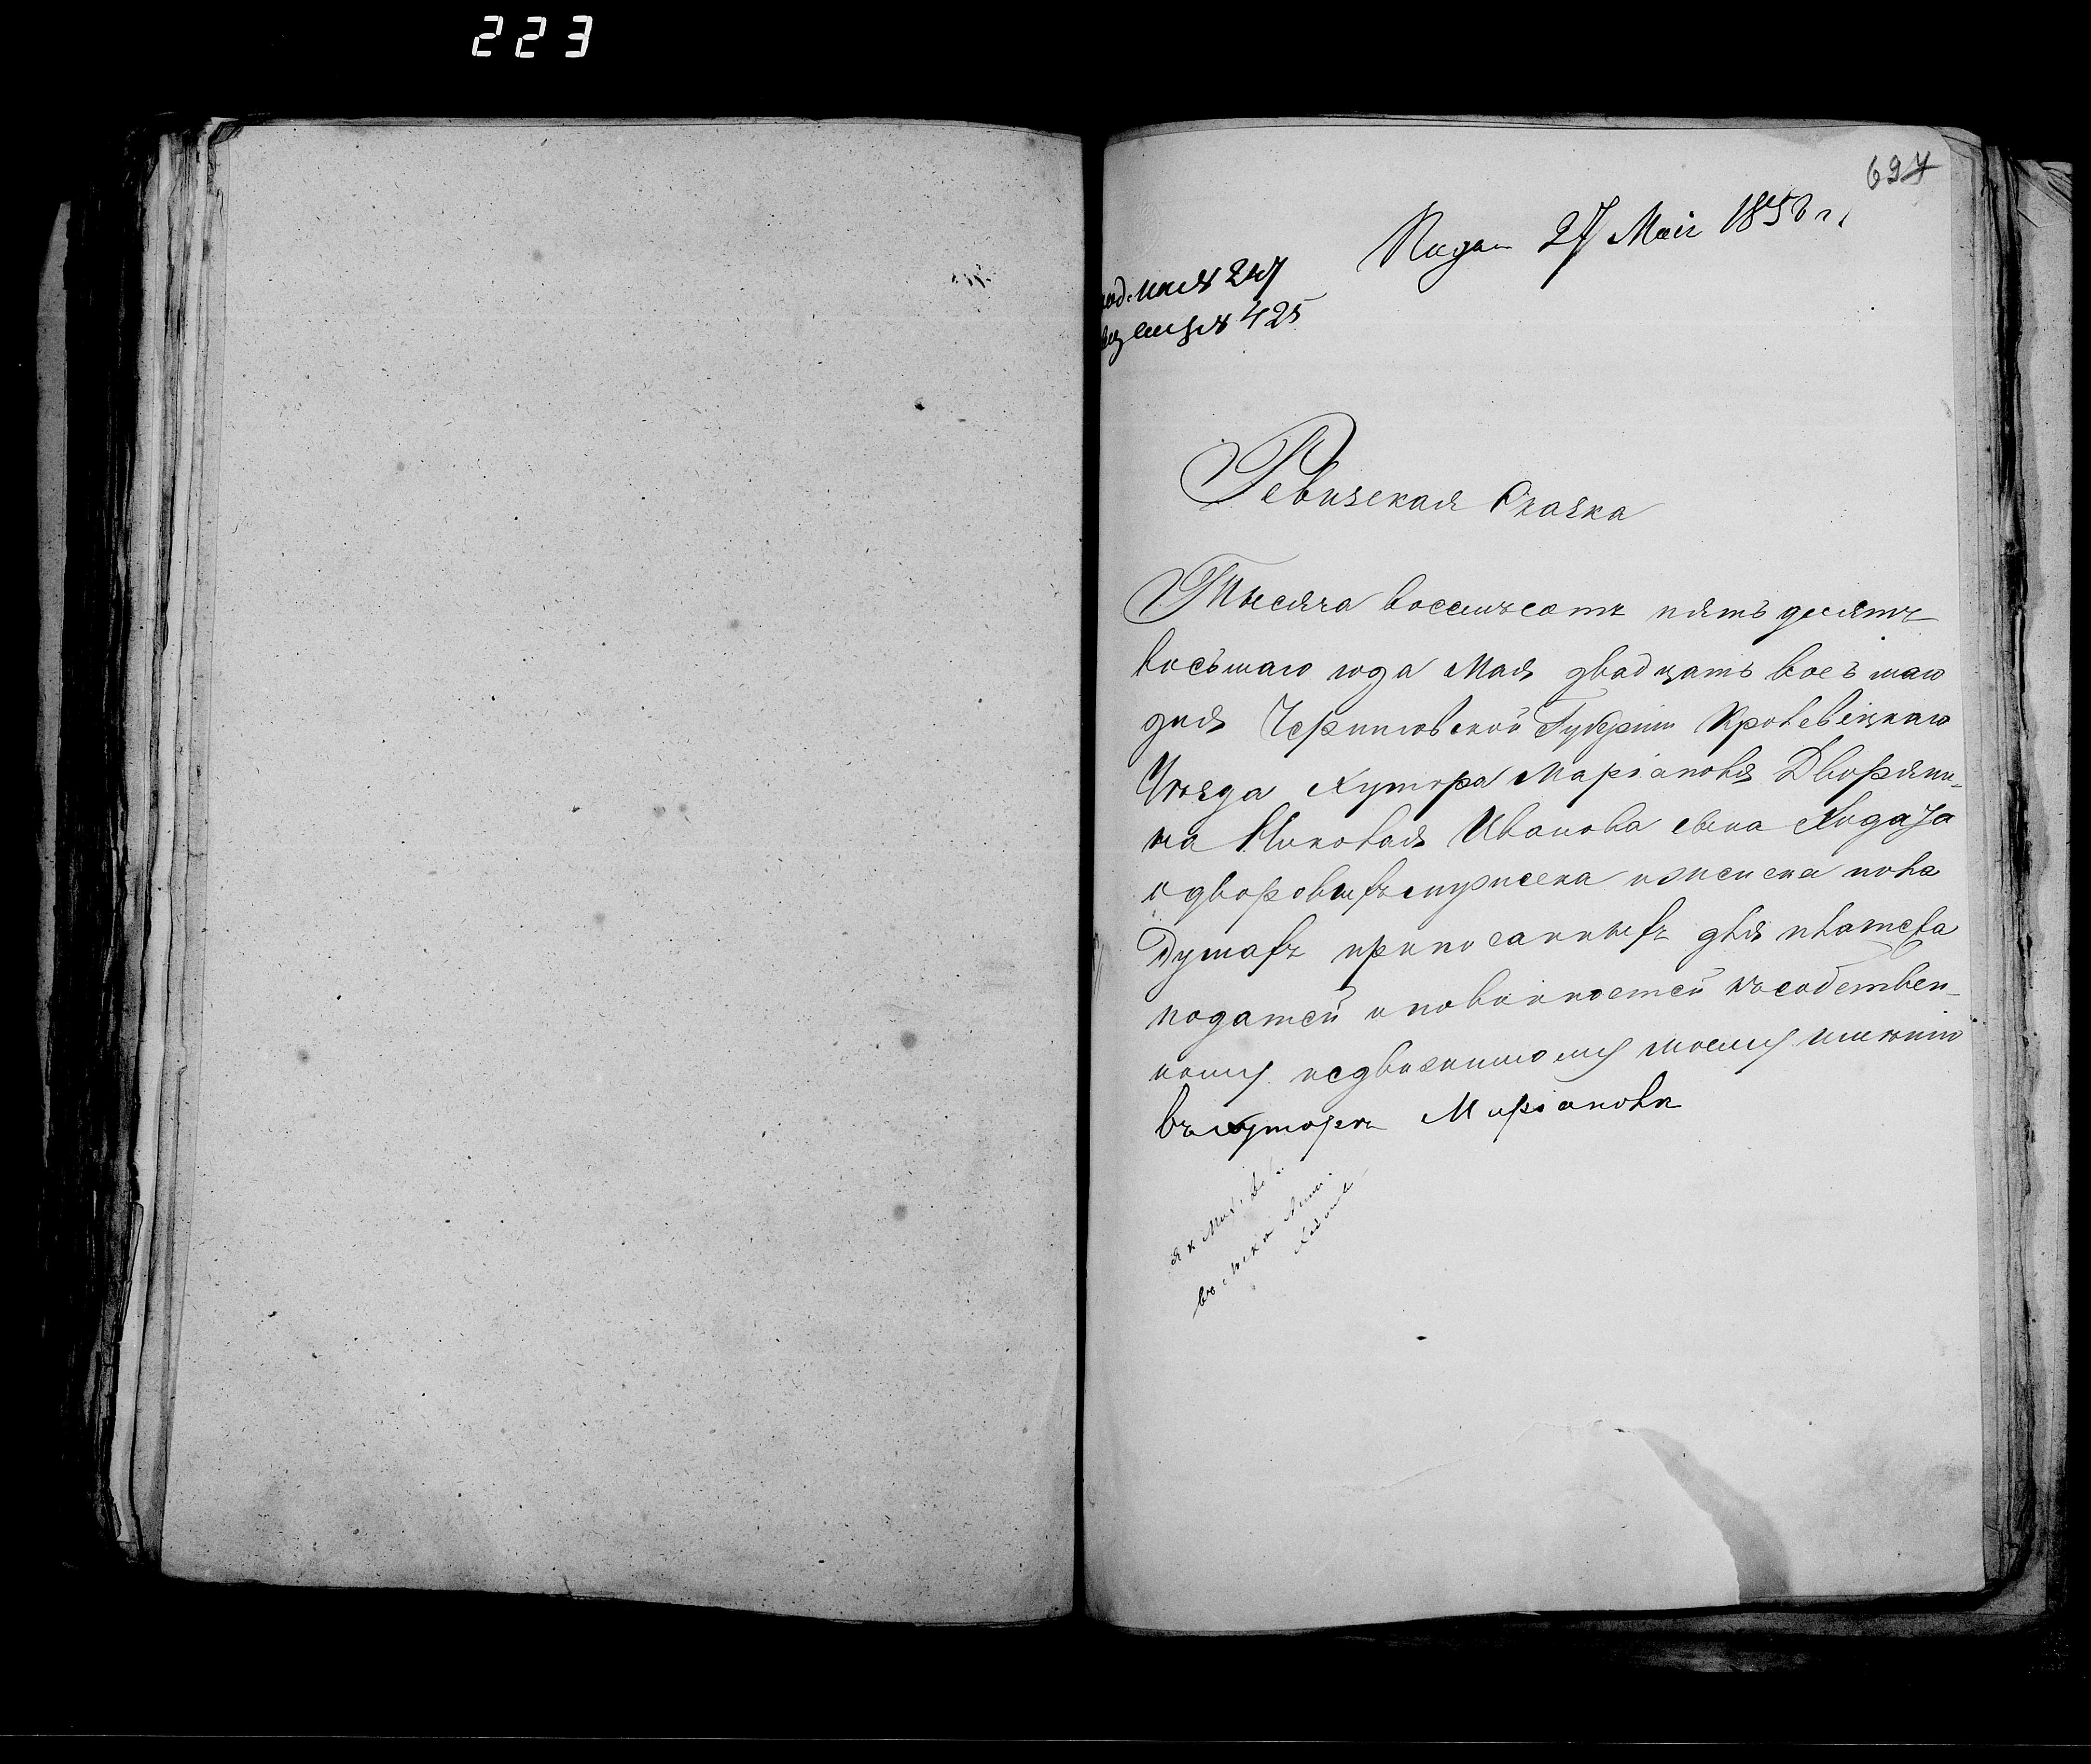 223
697
Подан 27 Мая 1858 г.
247
425
Ревизская Сказка
Тысяча восемьсотъ пятьдесятъ
восьмаго года Мая двадцать восьмаго
дня Черниговской Губерніи Кролевецкаго
Уѣзда Хутора Маріановка Дворяни-
на Николая Ивановa сына
о дворовыхъ мужеска и женска пола
Душахъ приписанныхъ для платежа
податей и повинностей къ собствен-
ному недвижимому моему имѣнію
въ хуторѣ Маріановкѣ